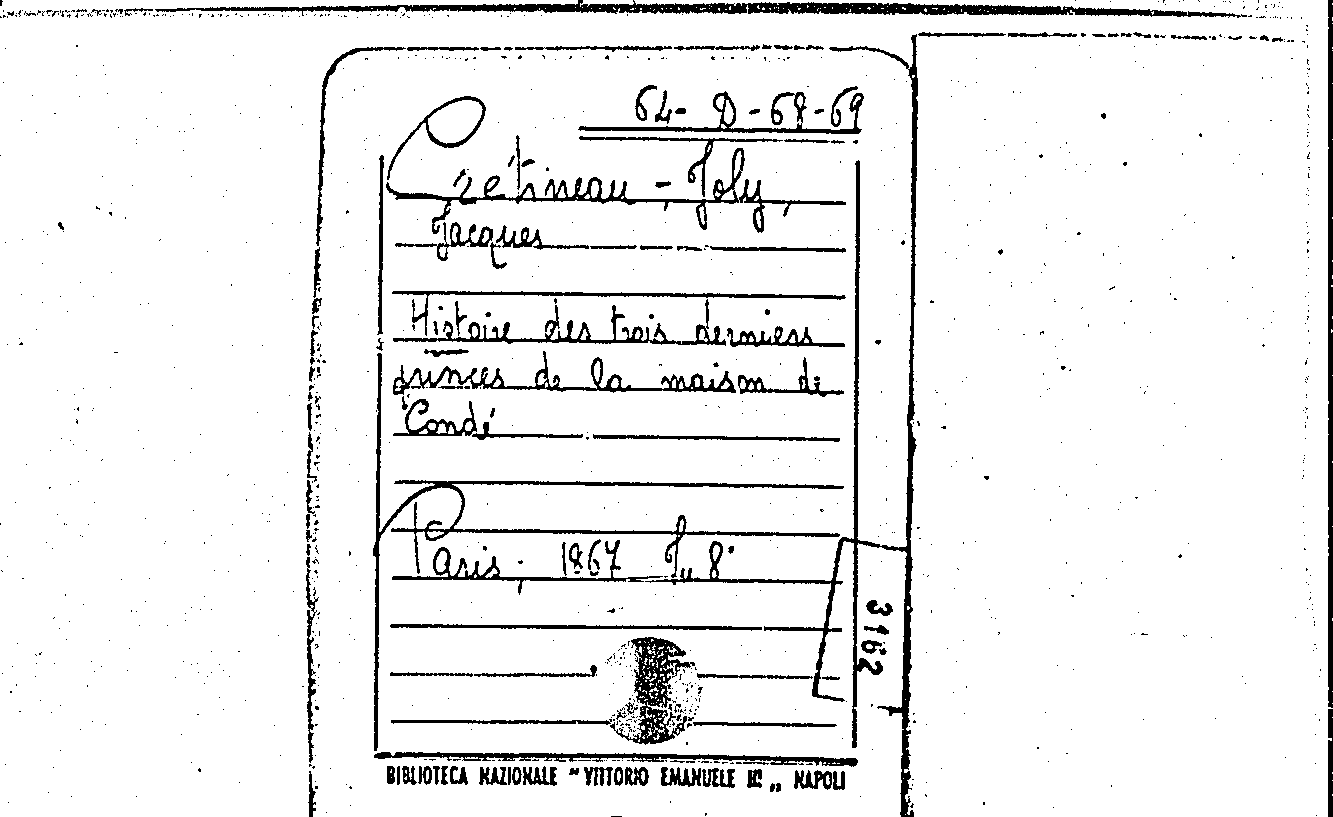 64-D-68-69
Crétineau-Joly,
Jacques
Histoire des trois derniers
princes de la maison de
Condé
Paris, 1867 In 8°
3162
BIBLIOTECA NAZIONALE "VITTORIO EMANUELE III" NAPOLI